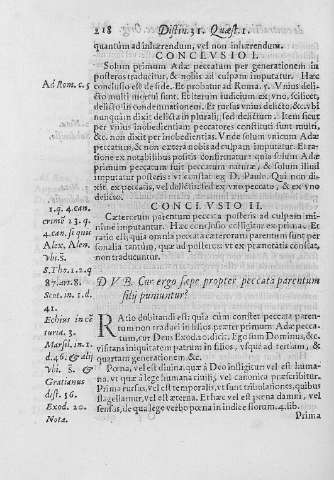 218 Distin.31. Quæst.1.
quantum ad inhærendum, vel non inhærendum.
CONCLVSIO I.
Solum primum Adæ peccatum per generationem in
posteros traducitur, & nobis ad culpam imputatur. Hæc
Ad Rom. c. 5 conclusio est de fide. Et probatur ad Roma. 5. Vnius deli-
cto multi mortui sunt. Et iterum iudicium ex vno, scilicet,
delicto in condemnationem. Et rursus vnius delicto. &c. vbi
nunquam dixit delicta in plurali, sed delictum. Item sicut
per vnius inobedientiam peccatores constituti sunt multi,
&c. non dixit per inobedientias. Vnde solum vnicum Adæ
peccatum, & non cætera nobis ad culpam imputatur. Et ratio-
ne ex notabilibus positis confirmatur: quia solum Adæ
primum peccatum fuit peccatum naturæ, & solum illud
imputatur posteris: vt constat ex D. Paulo. Qui non di-
xit, ex peccatis, vel delictis: sed ex vno peccato, & ex vno
delicto.
CONCLVSIO II.
1. q. 4. can. Cæterorum parentum peccata posteris ad culpam mi-
crimē 23. q. nime imputantur. Hæc conclusio colligitur ex prima. Et
4. can. si quis ratio est, quia omnia cæterorum parentum sunt per
Alex. Alen. sonalia tantum, quæ ad posteros vt ex præmotatis constat,
Vbi. S. non traducuntur.
S. Tho. 1. 2. q
87. ar. 8. DVB. Cur ergo sæpe propter peccata parentum
Scot. in. 1. d. filij puniuntur?
41.
Echius in cē RAtio dubitandi est: quia cùm constet peccata paren-
turia. 3. tum non traduci in filios præter primum Adæ pecca-
Marsil. in. 1 tum, cur Deus Exodo dicit: Ego sum Dominus, &c.
d. 46. & alij visitans iniquitatem patrum in filios, vsque ad tertiam, &
Vbi. S. & quartam generationem &c.
Gratianus Pœna, vel est diuina, quæ à Deo infligitur vel est huma-
dist. 56. na, vt quæ à lege humana ciuili, vel canonica præscribitur.
Exod. 20. Prima rursus, vel est temporalis, vt sunt tribulationes, quibus
Nota. flagellamur, vel est æterna. Et hæc vel est pœna damni, vel
sensus, de qua lege verbo pœna in indice
Prima